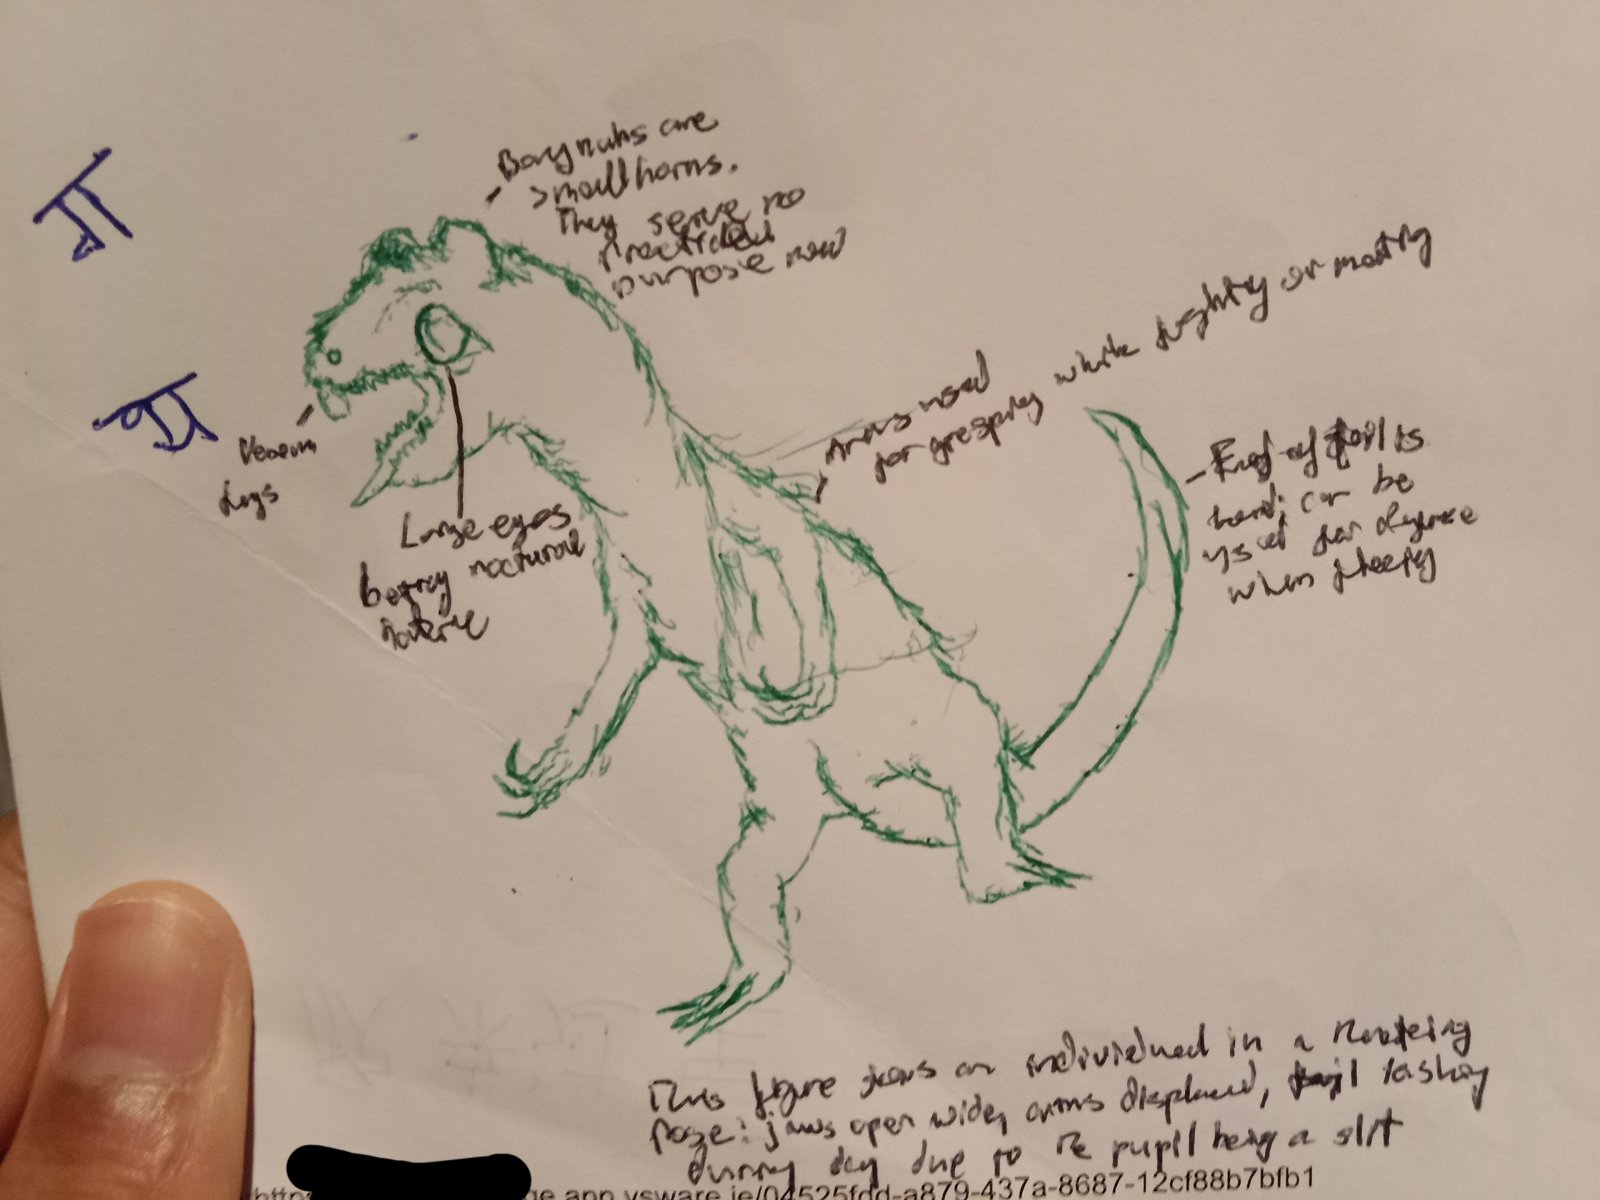 Bony nubs are
small horns.
They serve no
practical
purpose now
Arms used
for grasping while fighting or mating
Venom
fugs
Large eyes
betray nocturnal
nature
- End of tail is
hard; can be
used for defense
when fleeing
This figure shows an individual in a
pose: jaws open wide, arms displaced, tail lashing
during day due to the pupil being a slit
ge.app.vsware.ie/04525fdd-a879-437a-8687-12cf88b7bfb1